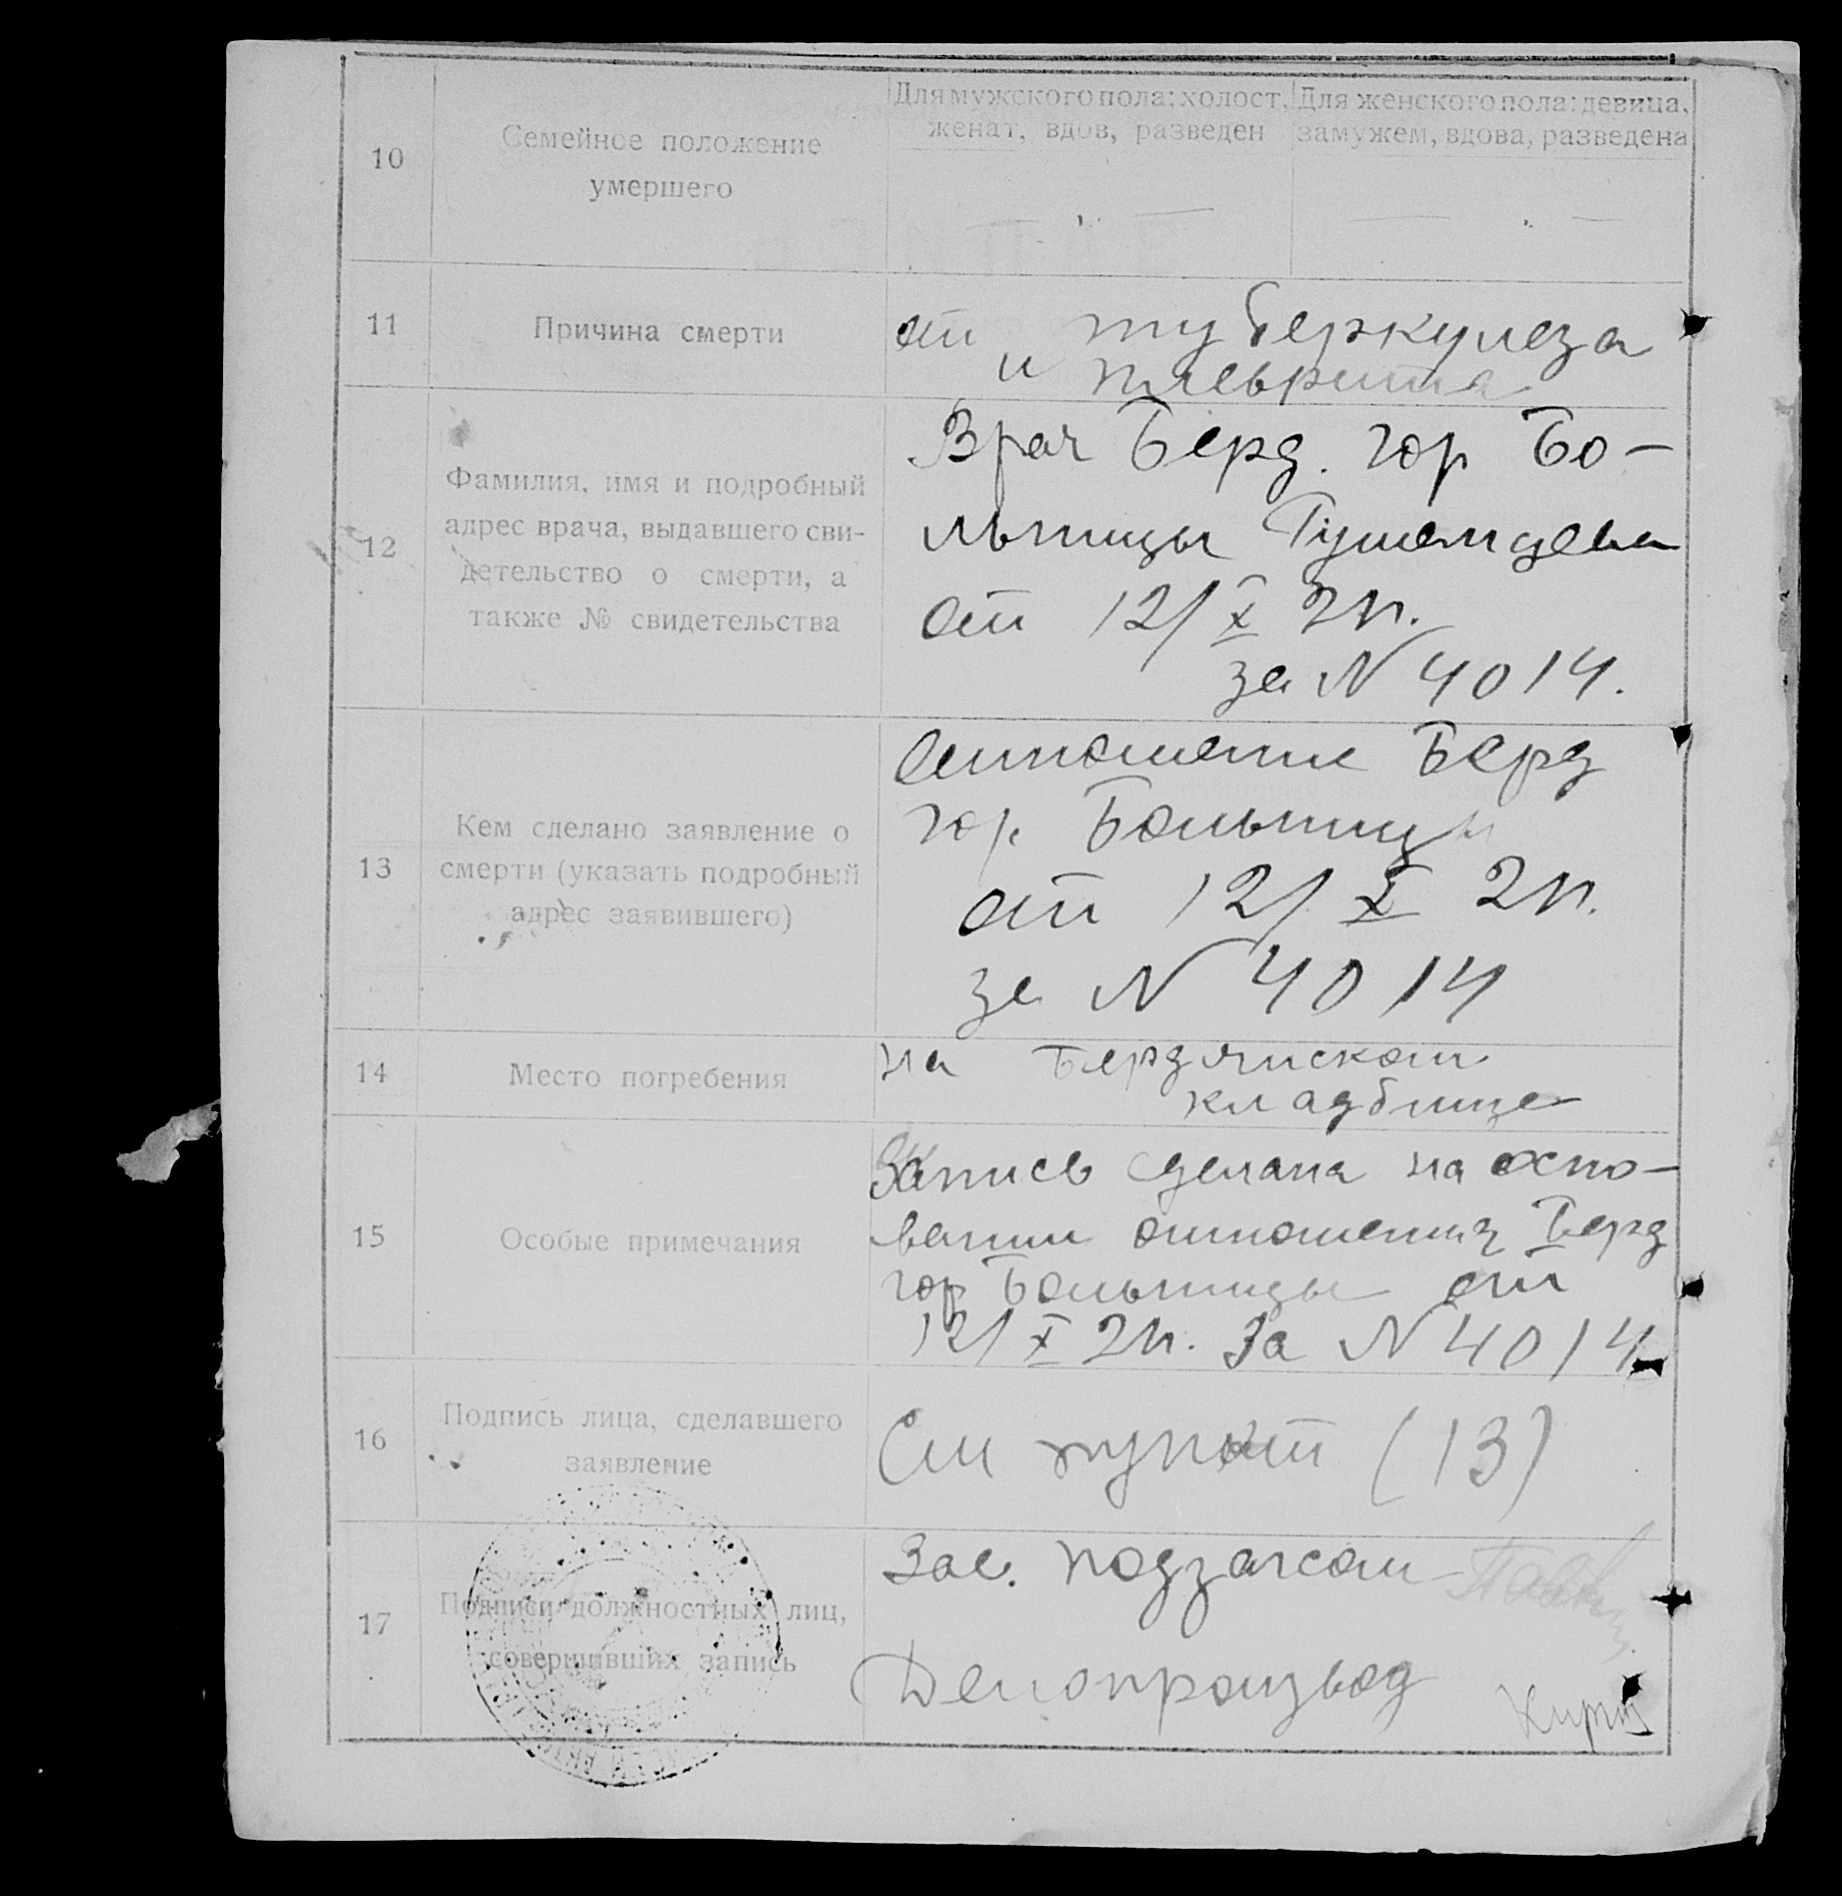 10
Семейное положение
умершего
Для мужского пола: холост,
женат, вдов, разведен
Для женского пола: девица,
замужем, вдова, разведена
— „ —
— „ —
11
Причина смерти
от туберкулеза
и плеврита
12
Фамилия, имя и подробный
адрес врача, выдавшего сви-
детельство о смерти, а
также № свидетельства
Врач Берд. гор Бо-
льницы
от 12/X 21г.
за N 4014.
13
Кем сделано заявление о
смерти (указать подробный
адрес заявившего)
Отношение Берд
гор. Больницы
от 12/X 21г.
за N 4014
14
Место погребения
на Бердянском
кладбище
15
Особые примечания
Запись сделана на осно-
вании отношения Берд
гор Больницы от
12/X 21г. За N 4014
16
Подпись лица, сделавшего
заявление
См пункт (13)
17
Подписи должностных лиц,
совершивших запись
Зав. подзагсом
Делопроизвод